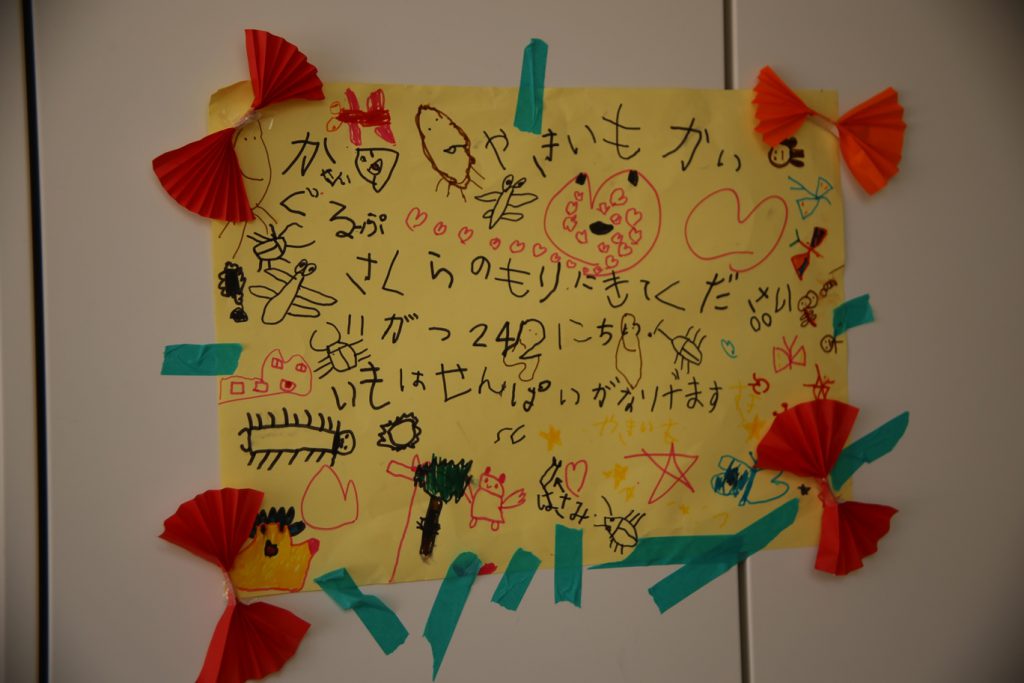 か せんい やきいもかい
ぐるーぷ
さくらのもりにきてください
11がつ24にち
いきはせんぱいがなげます
やきいも
はさみ